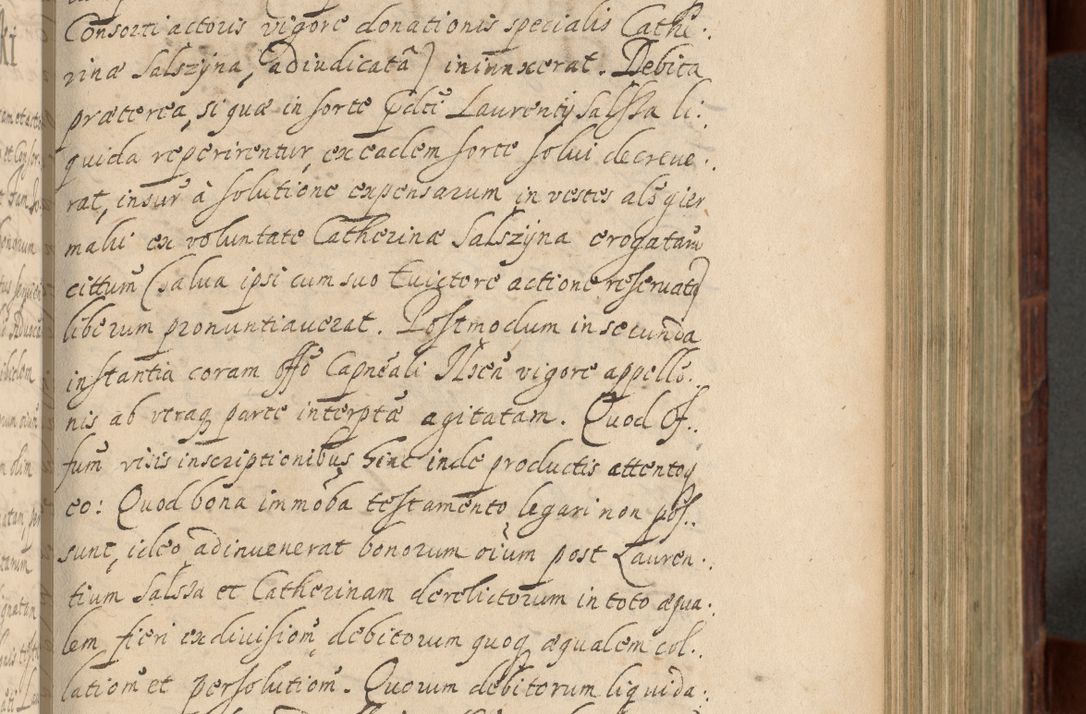 Consorti actoris vigore donationis specialis Cathe:
rinæ Salszyna, adiudicatâ) iniunxerat. Debita
præterea, si quæ in sorte pdti Laurentij Salssa li:
quida reperirentur, ex eadem sorte solui decreue:
rat, insur à solutione expensarum in vestes als gier
malii ex voluntate Catherinæ Salszyna erogatarū
cittum (salua ipsi cum suo Euictore actione reseruata)
liberum pronuntiauerat. Postmodum in secunda
instantia coram offo Capneali Ilscen vigore appello:
nis ab vtraq parte interptæ agitatam. Quod Of:
fum visis inscriptionibus hinc inde productis attentoq
eo: Quod bona immoba testamento legari non pos:
sunt, ideo adinuenerat bonorum oium post Lauren:
tium Salssa et Catherinam derelictorum in toto æqua:
lem fieri exdiuisiom, debitorum quoq æqualem col:
latiom et persolutiom. Quorum debitorum liquida: